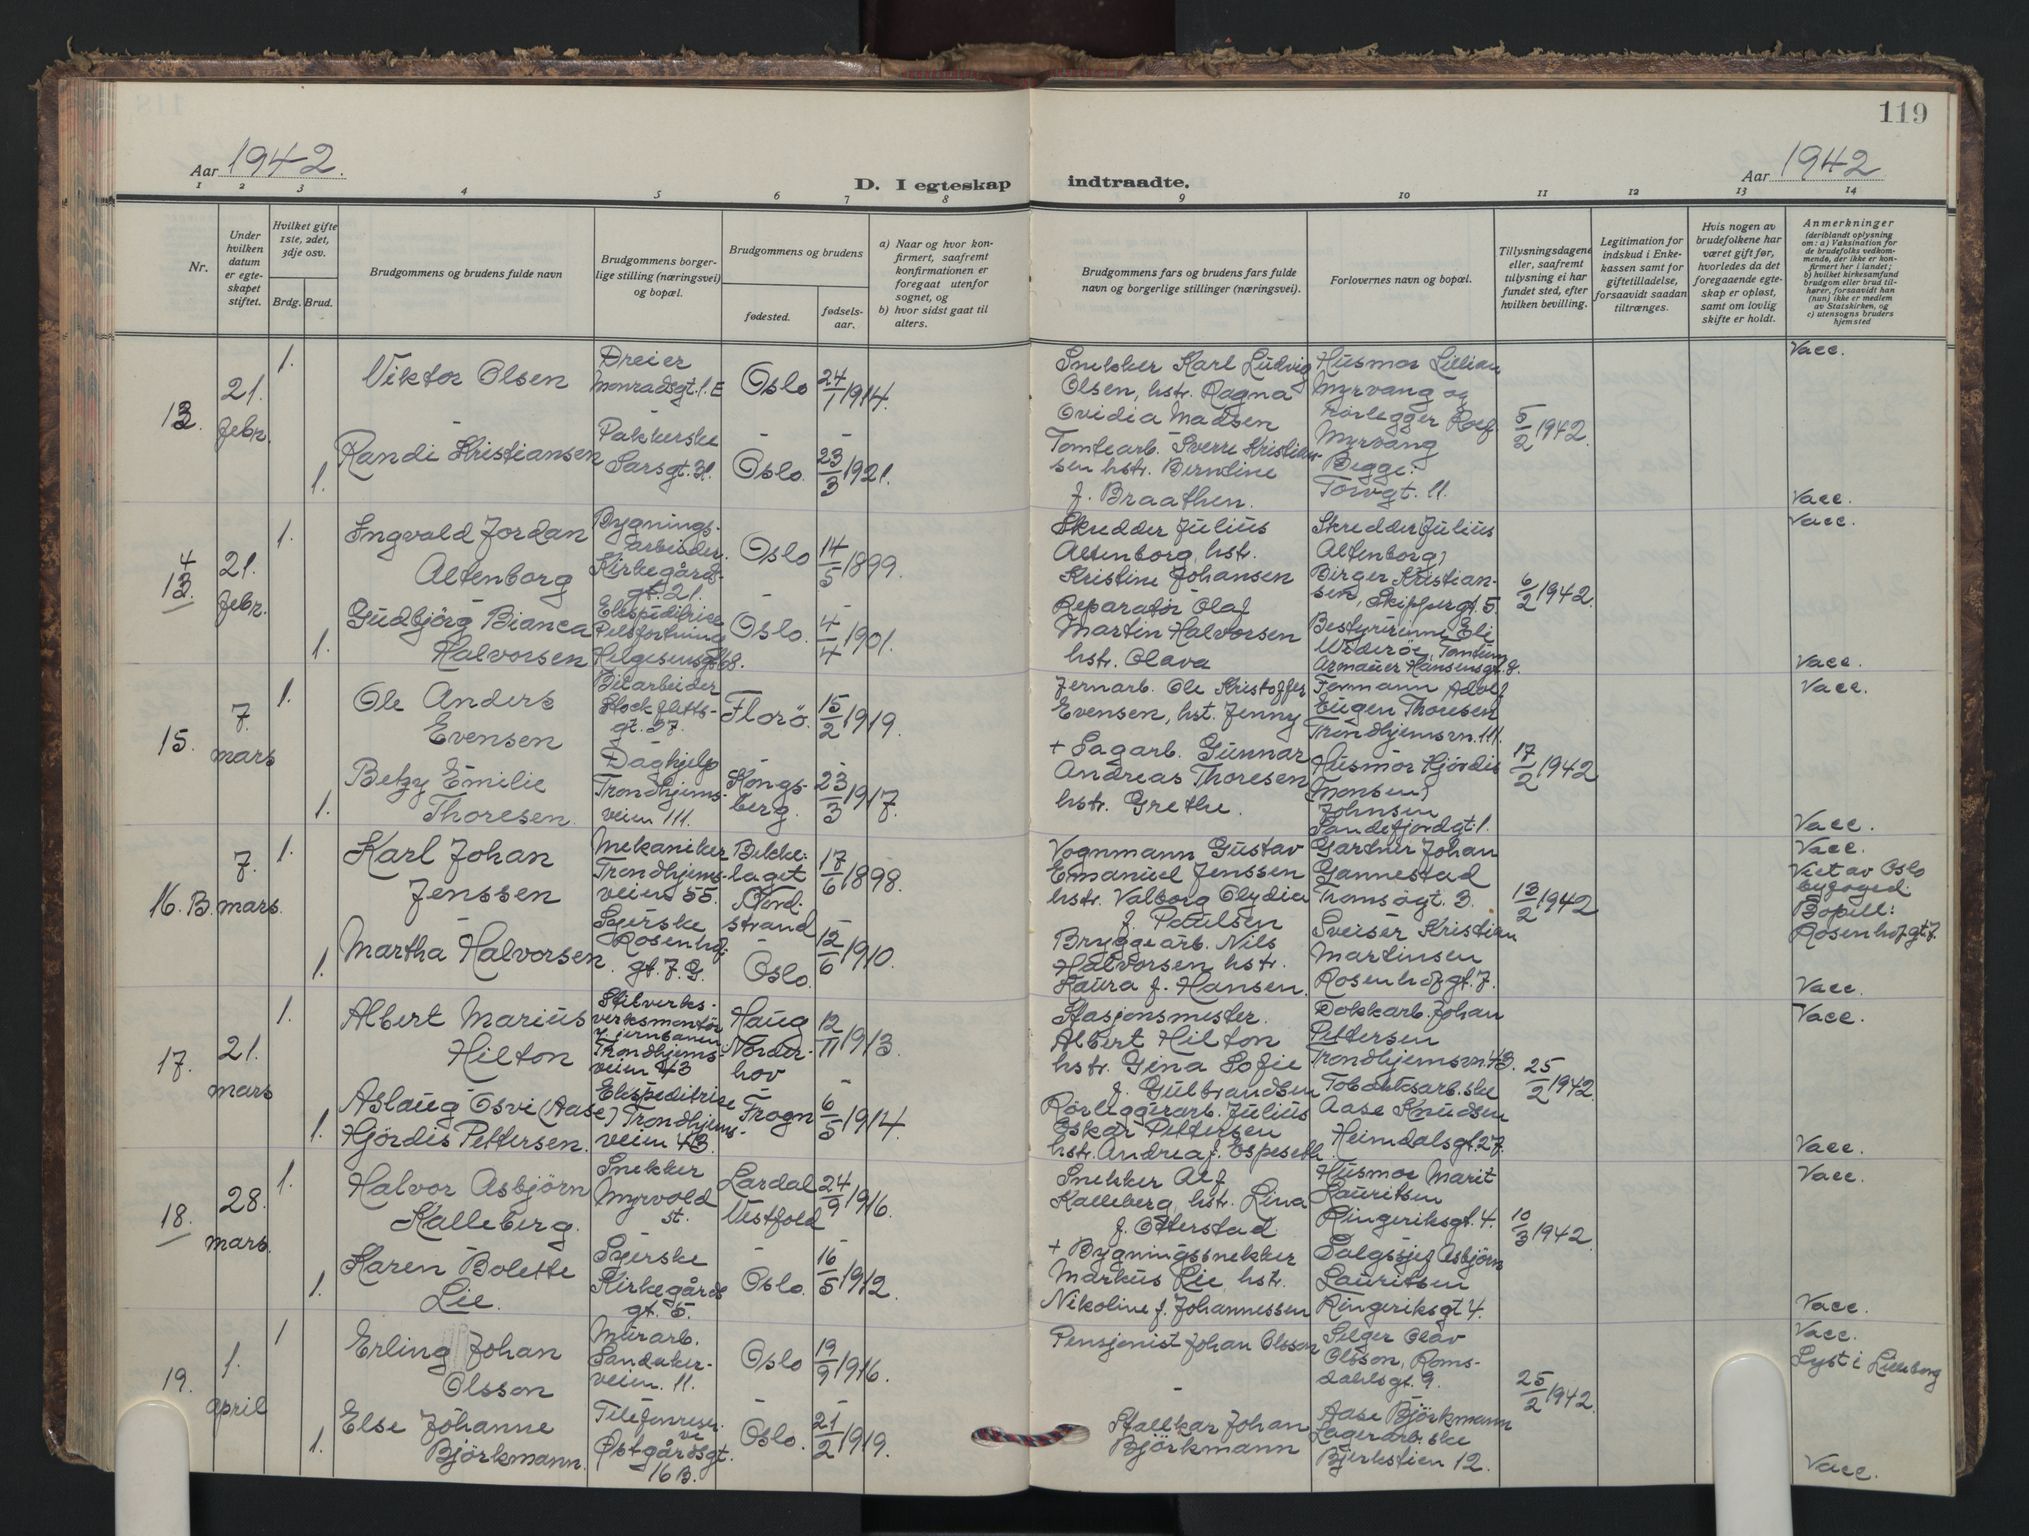 119
Aar 1942.
D. I egteskap indtraadte.
Aar 1942
1 2 3 4 5 6 7 8 9 10 11 12 13 14
Nr.
Under hvilken datum er egteskapet stiftet.
Hvilket gifte 1ste, 2det, 3dje osv.
Brdg. Brud.
Brudgommens og brudens fulde navn
Brudgommens borgerlige stilling (næringsvei) og bopæl.
Brudgommens og brudens
fødested.
fødselsaar.
a) Naar og hvor konfirmert, saafremt konfirmationen er foregaat utenfor sognet, og
b) hvor sidst gaat til alters.
Brudgommens fars og brudens fars fulde navn og borgerlige stillinger (næringsvei).
Forlovernes navn og bopæl.
Tillysningsdagene eller, saafremt tillysning ei har fundet sted, efter hvilken bevilling.
Legitimation for indskud i Enkekassen samt for giftetilladelse, forsaavidt saadan tiltrænges.
Hvis nogen av brudefolkene har været gift før, hvorledes da det foregaaende egteskap er opløst, samt om lovlig skifte er holdt.
Anmerkninger
(deriblandt oplysning om: a) Vaksination for de brudefolks vedkommende, der ikke er konfirmert her i landet; b) hvilket kirkesamfund brudgom eller brud tilhører, forsaavidt han (hun) ikke er medlem av Statskirken, og c) utensogns bruders hjemsted
13.
21.
febr.
1.
Viktor Olsen
Dreier
Monradsgt. 1. E
Oslo
24/1 1914.
Snekker Karl Ludvig
Olsen, hstr. Ragna
Ovidia Madsen
Husmor Lillian
Myrvang og
rørlegger Rolf
Myrvang
Begge:
Torvgt. 11.
5/2 1942.
Vacc.
1.
Randi Kristiansen
Pakkerske
Sarsgt. 31.
Oslo.
23/3 1921.
Tomtearb. Sverre Kristiansen hstr. Berntine
f. Braathen.
Vacc.
4
13.
21.
febr.
1.
Ingvald Jordan
Altenborg
Bygningsarbeider.
Kirkegårdsgt. 21.
Oslo
14/5 1899.
Skredder Julius
Altenborg, hstr.
Kristine Johansen
Skredder Julius
Altenborg,
Birger Kristiansen, Skippergt. 5
6/2 1942.
Vacc.
1.
Gudbjörg Bianca
Halvorsen
Ekspeditrise
Pelsforretning
Helgesensgt. 68.
Oslo.
4/4 1901.
Reparatør Olaf
Martin Halvorsen
hstr. Olava
Bestyrerinne Eli
Widerøe,
Armauer Hansensgt. 8.
Vacc.
15.
7.
mars
1.
Ole Anders
Evensen
Bilarbeider
Stockfletsgt. 37.
Florö.
15/2 1919.
Jernarb. Ole Kristoffer
Evensen, hst. Jenny
Formann Adolf
Eugen Thoresen
Trondhjemsvn. 111.
17/2 1942
Vacc.
1.
Betzy Emilie
Thoresen.
Daghjelp
Trondhjemsveien 111.
Kongsberg.
23/3 1917.
+ Sagarb. Gunnar
Andreas Thoresen
hstr. Grethe.
Husmor Hjördis
(Monsen)
Johnsen
Sandefjordgt. 1.
Vacc.
16. B.
7.
mars.
1.
Karl Johan
Jenssen
Mekaniker
Trondhjemsveien 55.
Bekkelaget
Nordstrand
17/6 1898.
Vognmann Gustav
Emanuel Jenssen
hstr. Valborg Olydia
f. Paulsen
Gartner Johan
Gannestad
Tromsøgt. 3.
13/2 1942
Vacc.
Viet av Oslo
byfoged.
Bopæl:
Rosenhofgt. 7.
1.
Martha Halvorsen.
Syerske
Rosenhofgt. 7. G.
Oslo.
12/6 1910.
Bryggearb. Nils
Halvorsen hstr.
Laura f. Hansen.
Sveiser Kristian
Martinsen
Rosenhofgt. 7.
Vacc.
17.
21.
mars
1.
Albert Marius
Hilton
Stilverksverksmontör
v. jernbanen
Trondhjemsveien 43
Haug
Norderhov
12/11 1913.
Stasjonsmester.
Albert Hilton
hstr. Gina Sofie
f. Gulbrandsen
Dokkarb. Johan
Pettersen
Trondhjemsvn. 43.
25/2 1942.
Vacc.
1.
Aslaug Osvi (Aase)
Hjördis Pettersen.
Ekspeditrise
Trondhjemsveien 43.
Frogn
6/5 1914.
Rörleggerarb. Julius
Oskar Pettersen
hstr. Andrea f. Espeseth.
Tobakksarb.ske
Aase Knudsen
Heimdalsgt. 27.
Vacc.
18.
28.
mars.
1.
Halvor Asbjørn
Kalleberg.
Snekker
Myrvold
st.
Lardal
Vestfold
24/9 1916.
Snekker Alf
Kalleberg, hstr. Lina
f. Otterstad.
Husmor Marit
Lauritsen
Ringeriksgt. 4.
10/3 1942.
Vacc.
1.
Karen Bolette
Lie.
Syerske
Kirkegårdsgt. 5.
Oslo.
16/5 1912.
+ Bygningssnekker
Markus Lie hstr.
Nikoline f. Johannessen
Salgssjef Asbjörn
Lauritsen
Ringeriksgt 4.
Vacc.
19.
1.
april
1
Erling Johan
Olsson
Murarb.
Sandakerveien. 11.
Oslo
19/9 1916.
Pensjonist Johan Olsson
Selger Olav
Olsson, Romsdahlsgt. 9.
25/2 1942.
Vacc.
Lyst i Lilleborg
1.
Else Johanne
Björkmann.
Östgårdsgt.
16 B.
Oslo.
21/2 1919.
Stallkar Johan
Björkmann
Aase Björkmann
Lagerarb.ske
Bjerkstien 12.
Vacc.